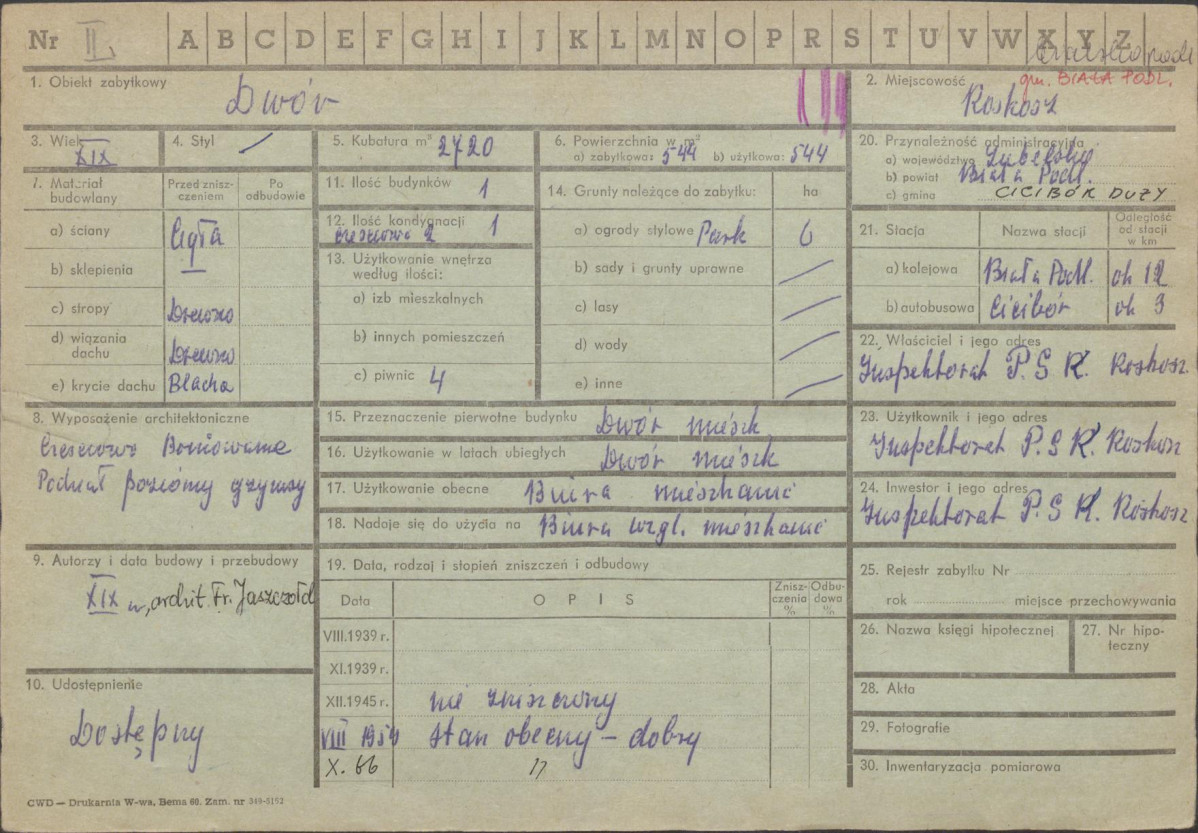 Nr II A B C D E F G H I J K L M N O P R S T U V W X Y Z
1. Obiekt zabytkowy
Dwór
2. Miejscowość gm. BIAŁA PODL.
Roskosz
3. Wiek XIX
4. Styl
5. Kubatura m³ 2720
6. Powierzchnia w m²
a) zabytkowa: 544 b) użytkowa: 544
20. Przynależność administracyjna
a) województwo Lubelskie
b) powiat Biała Podl.
c) gmina CICIBÓR DUŻY
7. Materiał budowlany
Przed znisz-
czeniem
Po
odbudowie
a) ściany Cegła
b) sklepienia —
c) stropy Drewno
d) wiązania
dachu Drewno
e) krycie dachu Blacha
11. Ilość budynków 1
12. Ilość kondygnacji 1
częściowo 2
13. Użytkowanie wnętrza
według ilości:
a) izb mieszkalnych
b) innych pomieszczeń
c) piwnic 4
14. Grunty należące do zabytku: ha
a) ogrody stylowe Park 6
b) sady i grunty uprawne
c) lasy
d) wody
e) inne
21. Stacja Nazwa stacji Odległość
od stacji
w km
a) kolejowa Biała Podl. ok 12
b) autobusowa Cicibór ok 3
22. Właściciel i jego adres
Inspektorat P.G.R. Roskosz.
8. Wyposażenie architektoniczne
Częściowo Boniowanie
Podział poziomy gzymsy
15. Przeznaczenie pierwotne budynku Dwór mieszk
16. Użytkowanie w latach ubiegłych Dwór mieszk
17. Użytkowanie obecne Biura mieszkanie
18. Nadaje się do użycia na Biura wzgl. mieszkanie
23. Użytkownik i jego adres
Inspektorat P.G.R. Roskosz
24. Inwestor i jego adres
Inspektorat P.G.R. Roskosz
9. Autorzy i data budowy i przebudowy
XIX w, archit. Fr. Jaszczołd
19. Data, rodzaj i stopień zniszczeń i odbudowy
Data OPIS Znisz-
czenia
%
Odbu-
dowa
%
VIII.1939 r.
XI.1939 r.
XII.1945 r. nie zniszczony
VIII 1959 stan obecny – dobry
X. 66 "
25. Rejestr zabytku Nr
rok miejsce przechowywania
26. Nazwa księgi hipotecznej
27. Nr hipo-
teczny
10. Udostępnienie
Dostępny
28. Akta
29. Fotografie
30. Inwentaryzacja pomiarowa
CWD — Drukarnia W-wa, Bema 60. Zam. nr 349-5192